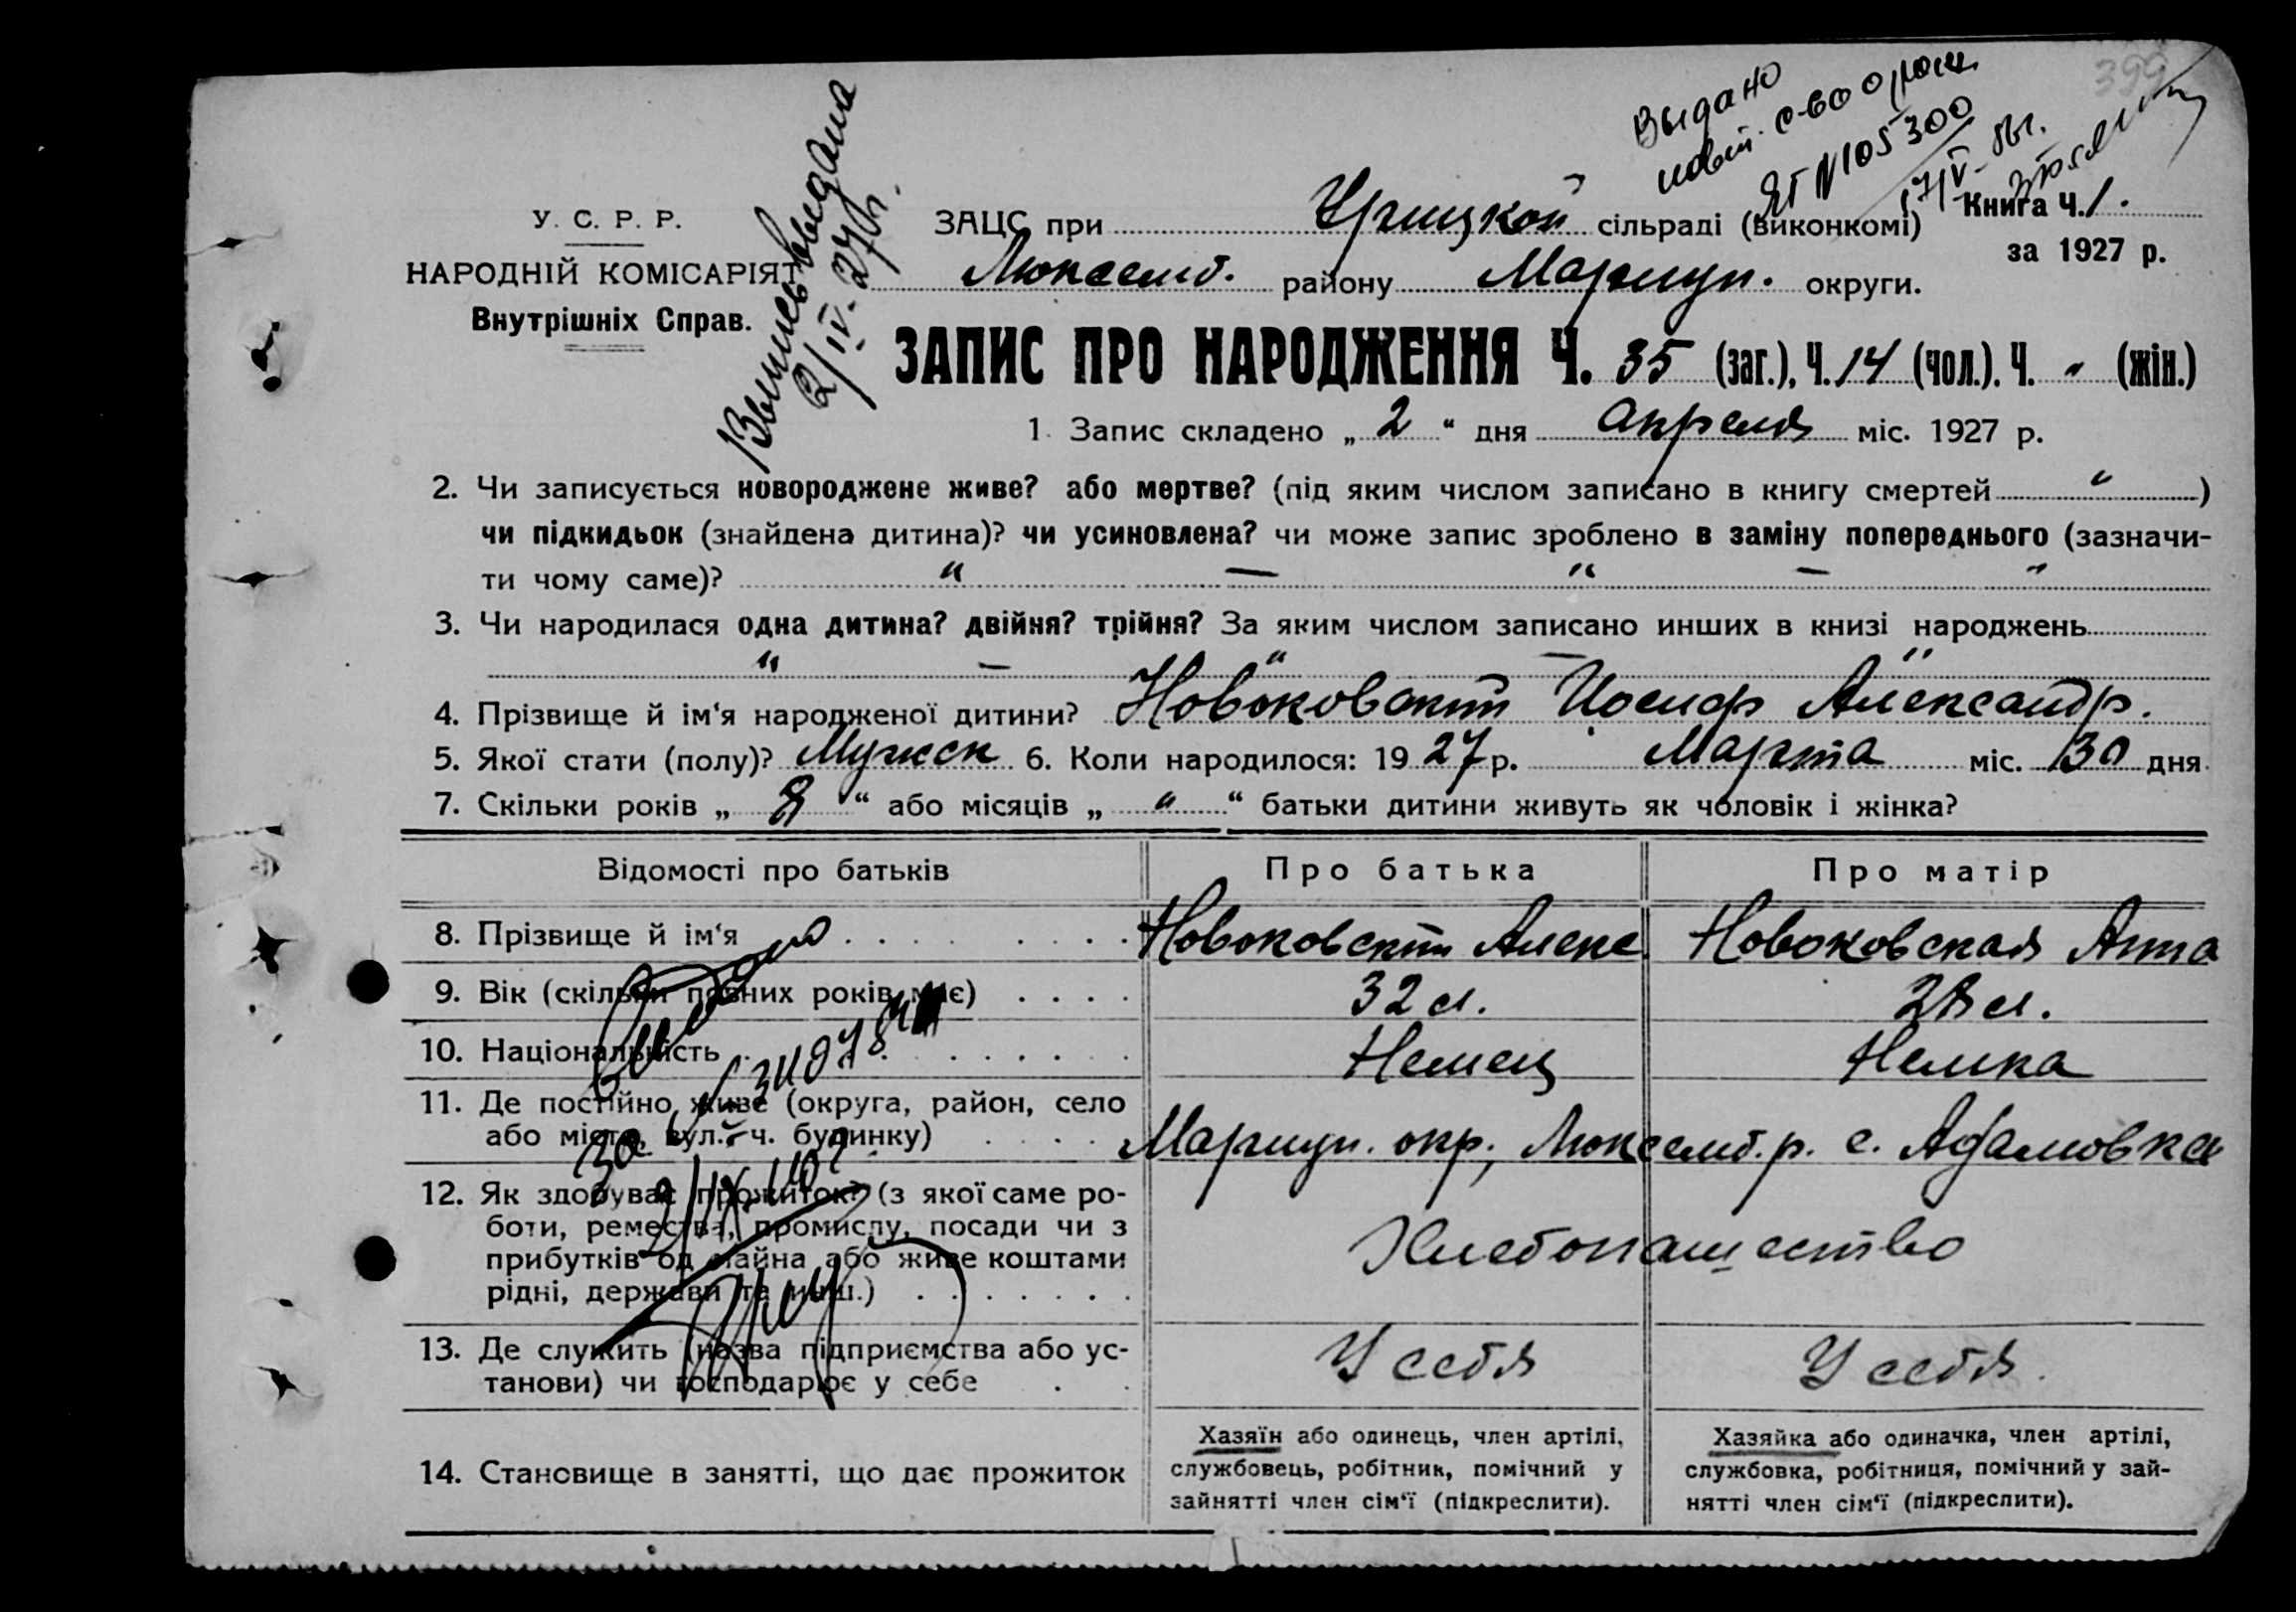 399
Выдано
повт. с-во о рожд.
ЯТ №105300
17/V-56г.
Выпись выдана
2/IV-27г.
У. С. Р. Р.
НАРОДНІЙ КОМІСАРІЯТ
Внутрішніх Справ.
ЗАЦС при Урицкой сільраді (виконкомі)
Люксемб. району Мариуп. округи.
Книга Ч. 1.
за 1927 р.
ЗАПИС ПРО НАРОДЖЕННЯ Ч. 35 (заг.), Ч. 14 (чол.). Ч. " (жін.)
1. Запис складено „ 2 “ дня апреля міс. 1927 р.
2. Чи записується новороджене живе? або мертве? (під яким числом записано в книгу смертей " )
чи підкидьок (знайдена дитина)? чи усиновлена? чи може запис зроблено в заміну попереднього (зазначи-
ти чому саме)? " — " — "
3. Чи народилася одна дитина? двійня? трійня? За яким числом записано инших в книзі народжень
" — " — "
4. Прізвище й ім‘я народженої дитини? Новоковский Иосиф Александр.
5. Якої стати (полу)? Мужск 6. Коли народилося: 1927 р. Марта міс. 30 дня
7. Скільки років „ 8 “ або місяців „ " “ батьки дитини живуть як чоловік і жінка?
Відомості про батьків Про батька Про матір
8. Прізвище й ім‘я Новоковский Алекс. Новоковская Анна
9. Вік (скільки повних років має) 32 л. 28 л.
10. Національність Немец Немка
11. Де постійно живе (округа, район, село
або місто, вул. й ч. будинку) Мариуп. окр., Люксемб. р. с. Адамовка
12. Як здобуває прожиток? (з якої саме ро-
боти, ремества, промислу, посади чи з
прибутків од майна або живе коштами
рідні, держави та инш.) Хлебопашество
13. Де служить (назва підприємства або ус-
танови) чи господарює у себе У себя У себя.
14. Становище в занятті, що дає прожиток
Хазяїн або одинець, член артілі,
службовець, робітник, помічний у
зайнятті член сім‘ї (підкреслити).
Хазяйка або одиначка, член артілі,
службовка, робітниця, помічний у зай-
нятті член сім‘ї (підкреслити).
Выдано